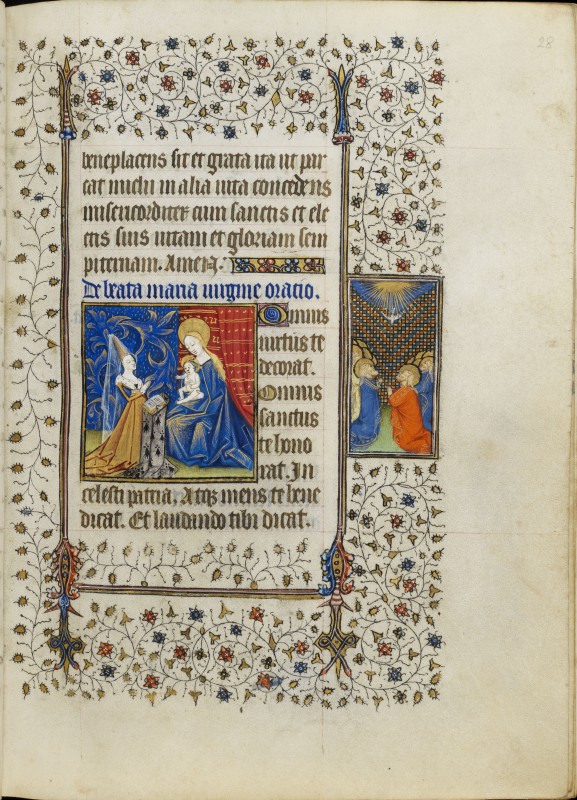 28
beneplacens sit et grata ita ut par
cat michi in alia uita concedens
misericorditer cum sanctis et ele
ctis suis uitam et gloriam sem
piternam. Amen.
De beata maria uirgine oracio.
Omnis
uirtus te
decorat.
Omnis
sanctus
te hono
rat. In
celesti patria, Atqꝫ mens te bene
dicat. Et laudando tibi dicat.